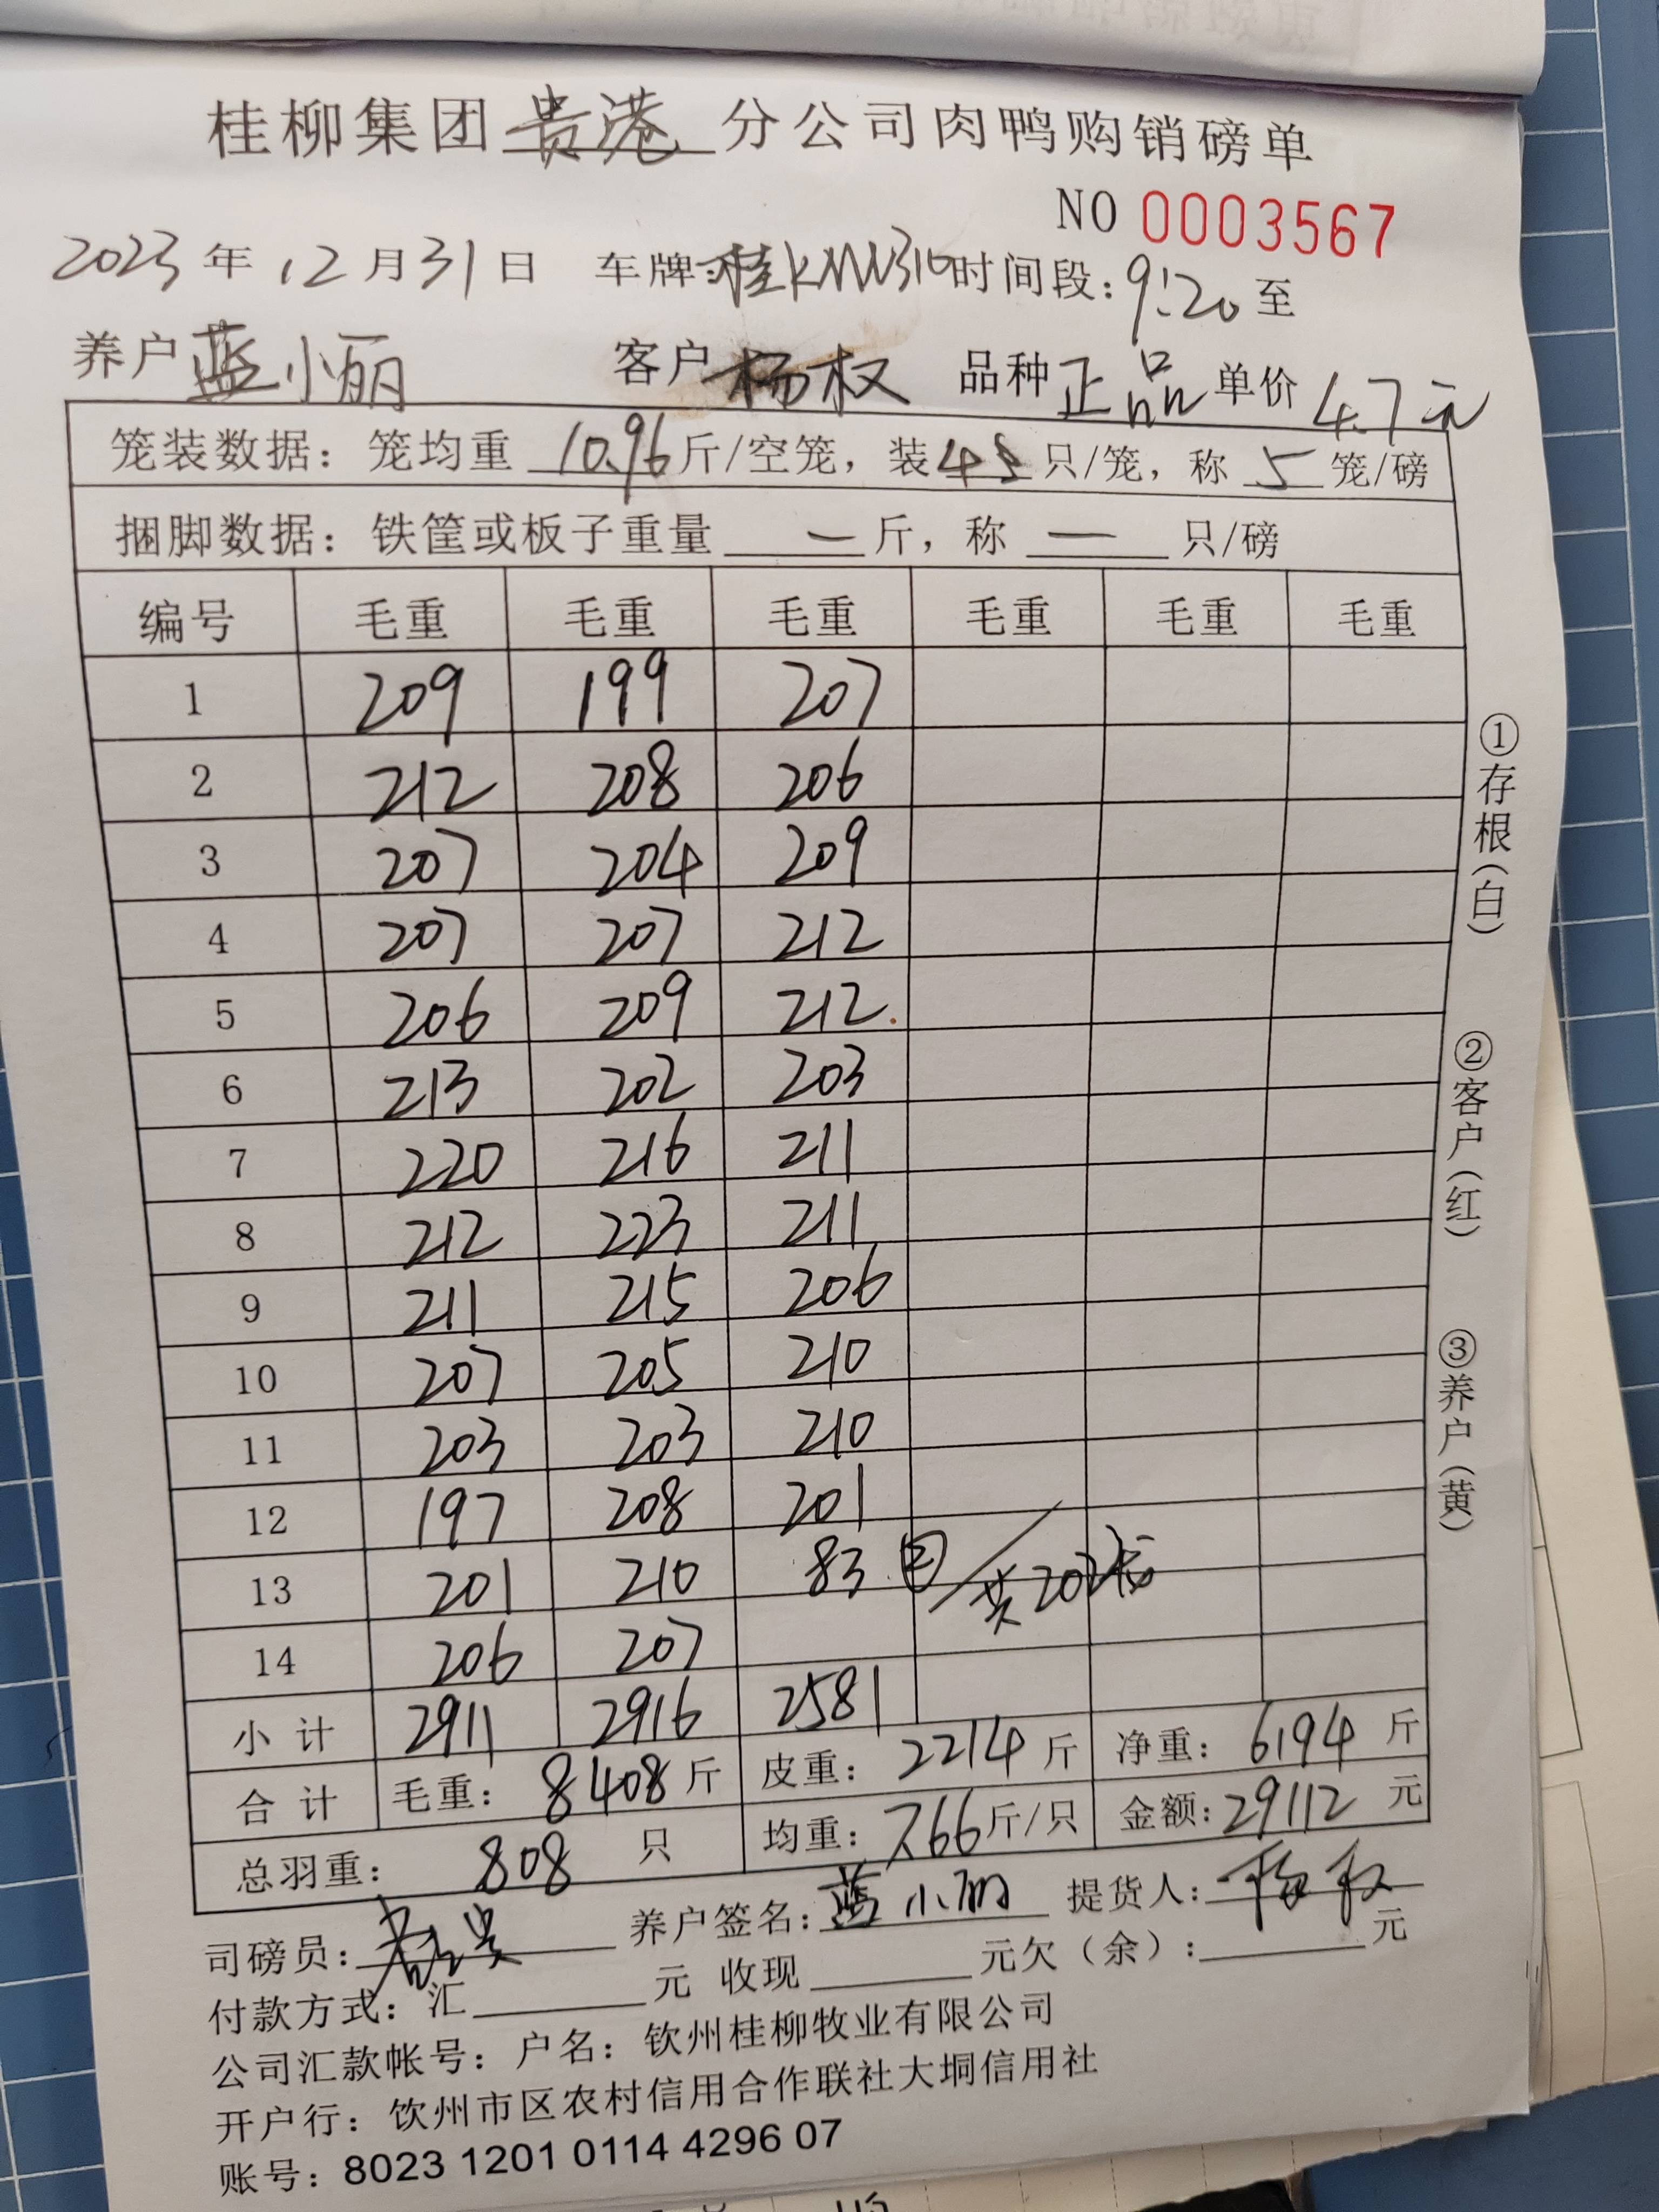 桂柳集团贵港分公司肉鸭购销磅单
NO 0003567
2023年12月31日 车牌:桂KNW310时间段:9:20至
养户 蓝小丽 客户 杨权 品种 正品 单价 4.7元
笼装数据:笼均重 10.96 斤/空笼,装 4 只/笼,称 5 笼/磅
捆脚数据:铁筐或板子重量 — 斤,称 — 只/磅
编号 毛重 毛重 毛重 毛重 毛重 毛重
1 209 199 207
2 212 208 206
3 207 204 209
4 207 207 212
5 206 209 212
6 213 202 203
7 220 216 211
8 212 223 211
9 211 215 206
10 207 205 210
11 203 203 210
12 197 208 201
13 201 210 83 ② 共202
14 206 207
小计 2911 2916 2581
合计 毛重: 8408斤 皮重: 2214斤 净重: 6194斤
总羽重: 808 只 均重: 7.66斤/只 金额: 29112元
司磅员: 养户签名: 蓝小丽 提货人: 杨权
付款方式:汇 元 收现 元欠(余): 元
公司汇款帐号:户名:钦州桂柳牧业有限公司
开户行:钦州市区农村信用合作联社大垌信用社
账号:8023 1201 0114 4296 07
①存根(白)
②客户(红)
③养户(黄)